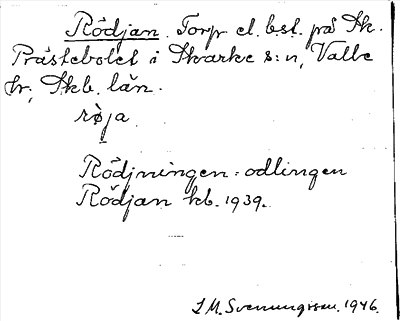 Rödjan. Torp el. bst. på Sk.
Prästebolet i Skarke s:n, Valle
hr, Skb. län.
røja
Rödjningen = odlingen
Rödjan kb. 1939.
S M. Svenungsson. 1946.